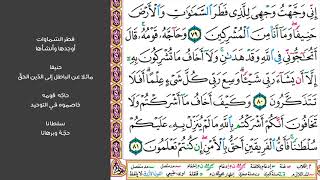 إِنِّي وَجَّهْتُ وَجْهِيَ لِلَّذِي فَطَرَ السَّمَٰوَٰتِ وَالْأَرْضَ
حَنِيفًا ۖ وَمَا أَنَا مِنَ الْمُشْرِكِينَ ﴿٧٩﴾ وَحَاجَّهُ قَوْمُهُ ۚ قَالَ
أَتُحَاجُّونِّي فِي اللَّهِ وَقَدْ هَدَىٰنِ ۚ وَلَا أَخَافُ مَا تُشْرِكُونَ بِهِ
إِلَّا أَن يَشَاءَ رَبِّي شَيْـًٔا ۗ وَسِعَ رَبِّي كُلَّ شَيْءٍ عِلْمًا ۗ أَفَلَا
تَتَذَكَّرُونَ ﴿٨٠﴾ وَكَيْفَ أَخَافُ مَا أَشْرَكْتُمْ وَلَا
تَخَافُونَ أَنَّكُمْ أَشْرَكْتُم بِاللَّهِ مَا لَمْ يُنَزِّلْ بِهِ عَلَيْكُمْ
سُلْطَٰنًا ۚ فَأَيُّ الْفَرِيقَيْنِ أَحَقُّ بِالْأَمْنِ ۖ إِن كُنتُمْ تَعْلَمُونَ ﴿٨١﴾
فطر السماوات
أوجدها وأنشأها
حنيفا
مائلا عن الباطل إلى الدين الحقّ
حاجّه قومه
خاصموه في التوحيد
سلطانا
حجّة وبرهانا